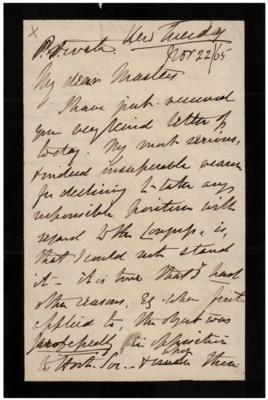 x
Private. Kew Tuesday
Nov 22/65
My dear Masters
I have just received
your very kind letter of
today. My most serious,
& indeed insuperable reason
for declining to take any
responsible position with
regard to the Congress, is,
that I could not stand
it — it is true that I had
other reasons, Eg. when first
applied to, the object was
in opposition
to Hort. Soc. — &